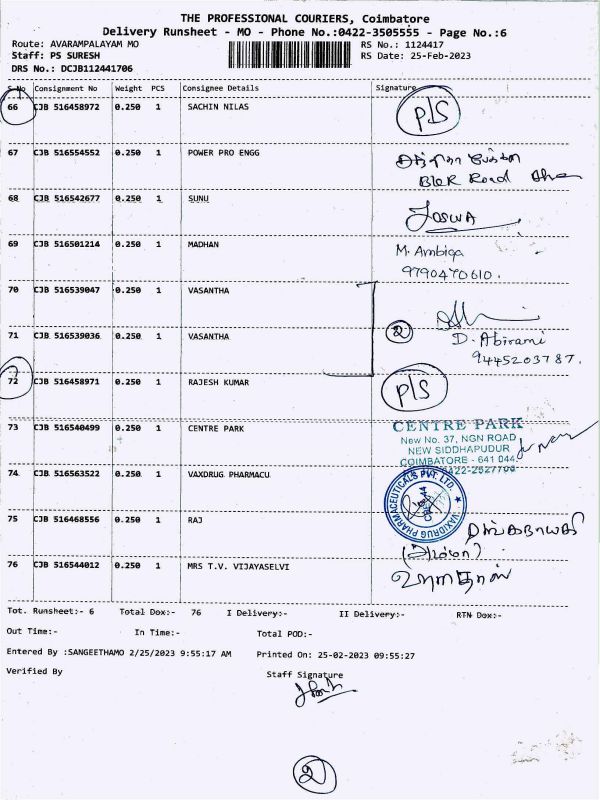 THE PROFESSIONAL COURIERS, Coimbatore
Delivery Runsheet - MO - Phone No.:0422-3505555 - Page No.:6
Route: AVARAMPALAYAM MO RS No.: 1124417
Staff: PS SURESH RS Date: 25-Feb-2023
DRS No.: DCJB112441706
S.No Consignment No Weight PCS Consignee Details Signature
66 CJB 516458972 0.250 1 SACHIN NILAS P/S
67 CJB 516554552 0.250 1 POWER PRO ENGG
Road
68 CJB 516542677 0.250 1 SUNU JOSWA
69 CJB 516501214 0.250 1 MADHAN M. Ambiga
9790470610.
70 CJB 516539047 0.250 1 VASANTHA
71 CJB 516539036 0.250 1 VASANTHA 2 D. Abirami
9445203787.
72 CJB 516458971 0.250 1 RAJESH KUMAR P/S
73 CJB 516540499 0.250 1 CENTRE PARK CENTRE PARK
New No. 37, NGN ROAD
NEW SIDDHAPUDUR
COIMBATORE - 641 044
0422-2527706
74 CJB 516563522 0.250 1 VAXDRUG PHARMACU VAXIDRUG PHARMACEUTICALS PVT. LTD.
75 CJB 516468556 0.250 1 RAJ
(அம்மா)
76 CJB 516544012 0.250 1 MRS T.V. VIJAYASELVI
Tot. Runsheet:- 6 Total Dox:- 76 I Delivery:- II Delivery:- RTN Dox:-
Out Time:- In Time:- Total POD:-
Entered By :SANGEETHAMO 2/25/2023 9:55:17 AM Printed On: 25-02-2023 09:55:27
Verified By Staff Signature
2